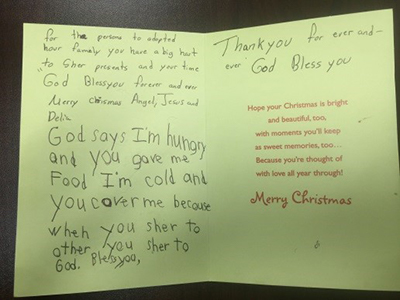 for the persons to adopted
hour family you have a big hart
to Sher presents and your time
God Blessyou forever and ever
Merry Chrismas Angel, Jesus and
Delia
God says I'm hungry
and you gave me
Food I'm cold and
you cover me because
when you sher to
other you sher to
God. Blessyou,
Thankyou for ever and-
ever God Bless you
Hope your Christmas is bright
and beautiful, too,
with moments you'll keep
as sweet memories, too...
Because you're thought of
with love all year through!
Merry Christmas